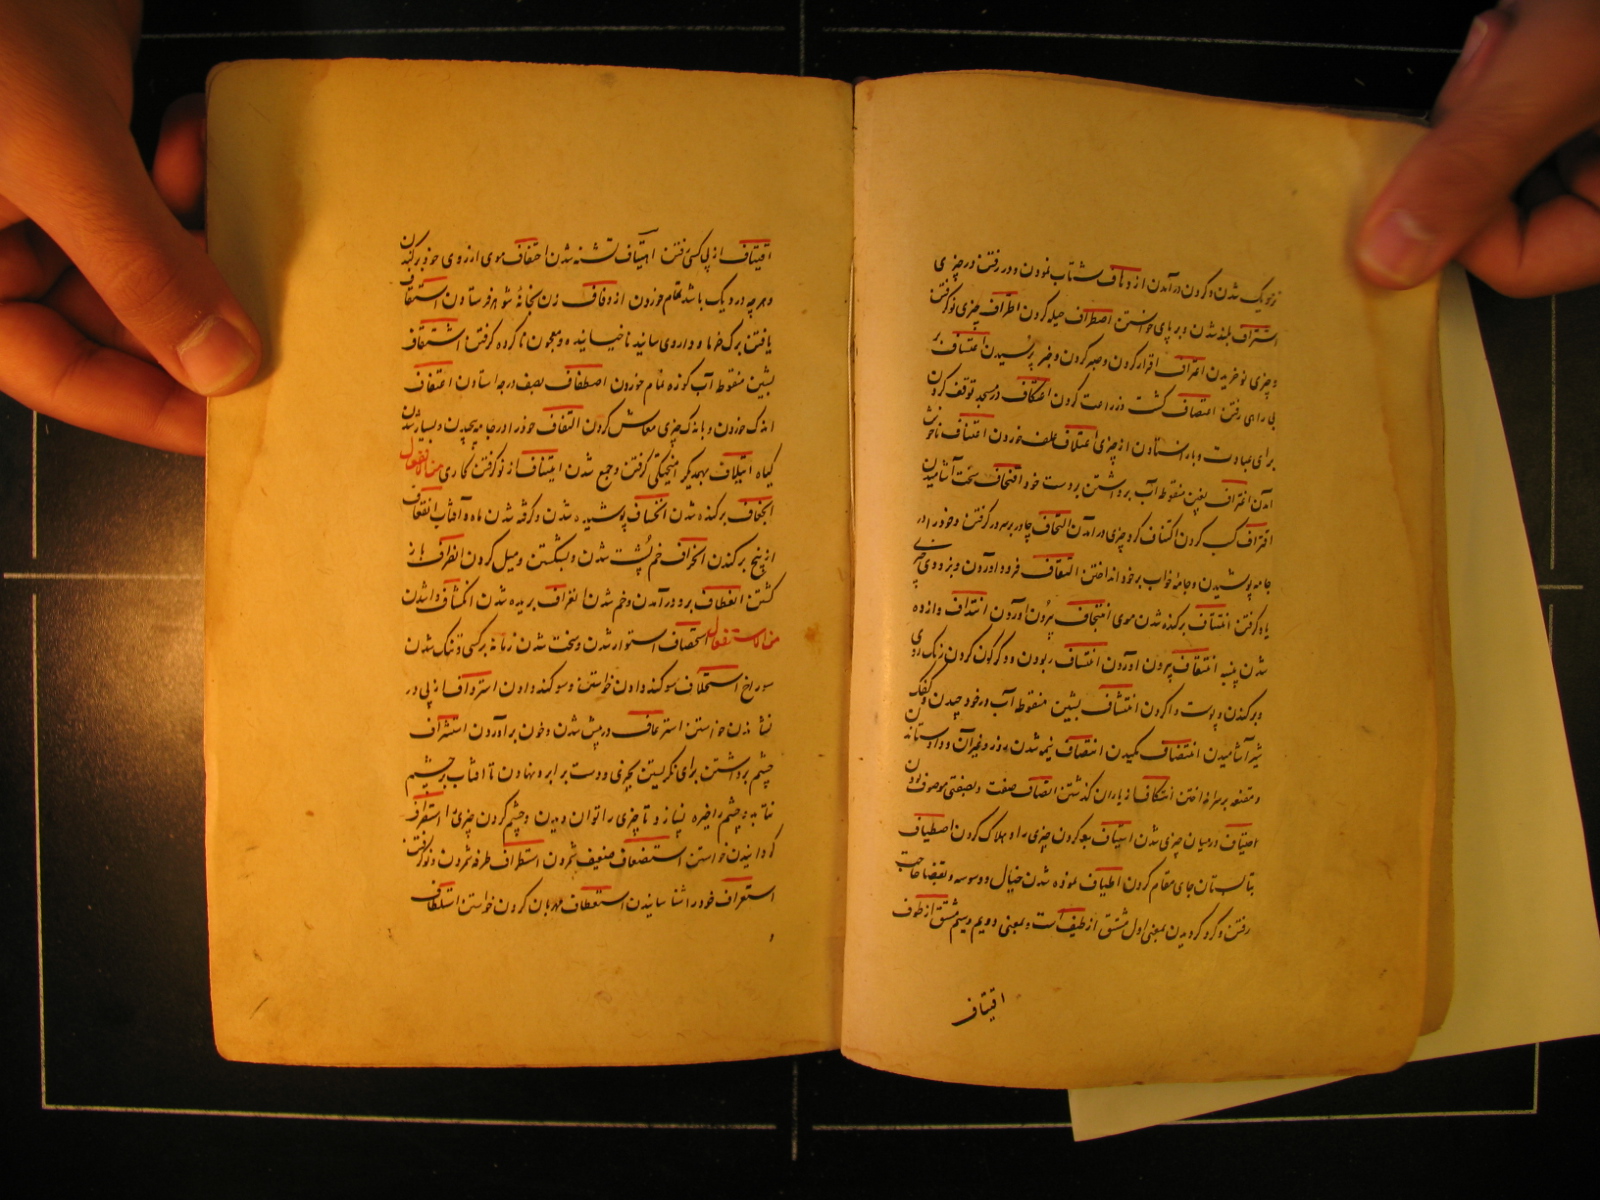 نزدیک شدن و کردن درآمدن ازدهاف شتاب نمودن و در رفتن در چیزی
استراف بلند شدن و بر پای خواستن اصطراف حیله کردن اطراف چیزی نو گرفتن
و چیزی نو خریدن اعتراف اقرار کردن و صبر کردن و خبر پرسیدن اعتساف بر
بی راهی رفتن اعتصاف کشت و زراعت کردن اعتکاف در مسجد توقف کردن
برای عبادت و باز استادن از چیزی اعتلاف علف خوردن اعتناف ناخوش
آمدن اغتراف بغین منقوط آب برداشتن بدست خود اقتحاف سخت آشامیدن
اقتراف کسب کردن اکتناف گرد چیزی درآمدن التحاف چادر بر سر گرفتن و خود را در
جامه پوشیدن و جامه خواب بر خود انداختن التقاف فرود آوردن و بزودی چیزی
یاد گرفتن انتتاف برکنده شدن موی انتجاف بیرون آوردن انتداف وازده
شدن پنبه انتقاف بیرون آوردن انتساف ربودن و دگرگون کردن رنگ روی
و برکندن و پوست وا کردن انتشاف بشین منقوط آب در خود چیدن و کفک
شیر آشامیدن انتضاف مکیدن انتصاف نیمه شدن روز و غیر آن و داد ستاندن
و مقنعه بر سر انداختن انتکاف از باران گذشتن اتصاف صفت و بصفتی موصوف بودن
اجتیاف در میان چیزی شدن استیاف بو کردن چیزی را و هلاک کردن اصطیاف
بتابستان جای مقام کردن اطیاف آموزه شدن خیال و وسوسه و بقضا حاجت
رفتن و گرد گردیدن بمعنی اول مشتق از طیف است و بمعنی دویم و سیم مشتق از طوف
اقتیاف
اقتیاف از پی کسی رفتن اهتیاف تشنه شدن احتفاف موی از روی خود برکندن
و هر چه در دیگ باشد تمام خوردن ازدفاف زن بخانهٔ شوهر فرستادن استفاف
یافتن برگ خرما و داروی سائیده ناخیسانیده و معجون ناکرده گرفتن اشتفاف
بشین منقوط آب کوزه تمام خوردن اصطفاف بصف در جه استادن اعتفاف
اندک خوردن و باندک چیزی معاش کردن التفاف خود را در جامه پیچیدن و بسیار شدن
گیاه ایتلاف بهمدیگر آمیختگی گرفتن و جمع شدن ایتناف از نو گرفتن کاری من الانفعال
انجعاف برکنده شدن انخساف پوشیده شدن و گرفته شدن ماه و آفتاب انقعاف
از بیخ برکندن انحراف خم پشت شدن و بشکستن و میل کردن انطراف باز
گشتن انعطاف برو درآمدن و خم شدن انغراف بریده شدن انکشاف واشدن
من الاستفعال استحصاف استوار شدن و سخت شدن زمانه بر کسی و تنگ شدن
سوراخ استحلاف سوگند دادن خواستن و سوگند دادن استرداف از پی در
نشاندن خواستن استرعاف در پیش شدن و خون برآوردن استشراف
چشم برداشتن برای نگریستن بچیزی و دست بر ابرو نهادن تا آفتاب بر چشم
نتابد و چشم را خیره نسازد و تا چیزی را توان دیدن و چشم کردن چیزی استصراف
گردانیدن خواستن استضعاف ضعیف شمردن استطراف طرفه شمردن و نو گرفتن
استعراف خود را شناسانیدن استعطاف مهربان کردن خواستن استلطاف